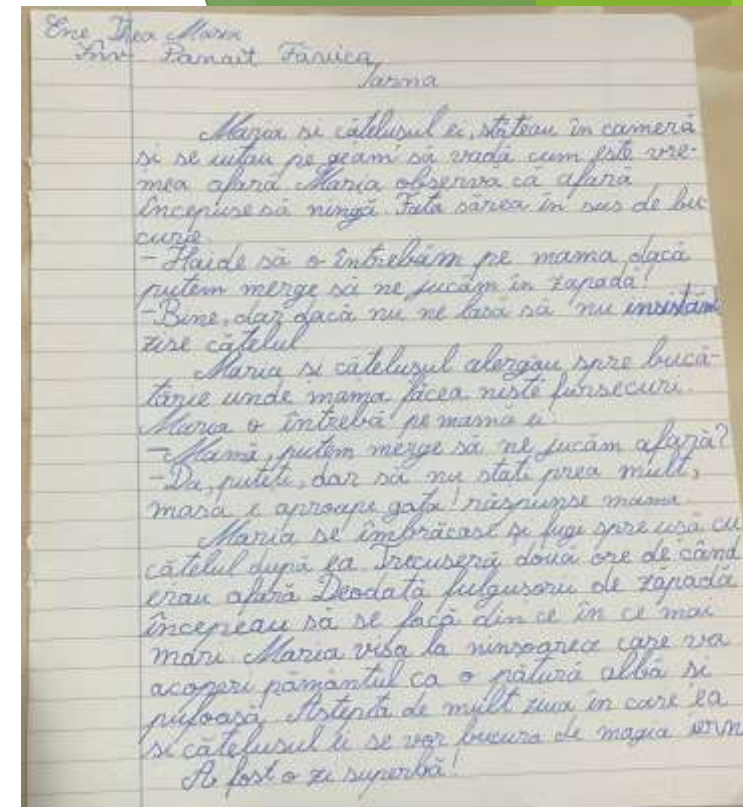 Ene Thea Maria
Înv Panait Fănica
Iarna
Maria și cățelușul ei, stăteau în cameră
și se uitau pe geam să vadă cum este vre-
mea afară. Maria observă că afară
începuse să ningă. Fata sărea în sus de bu
curie.
- Haide să o întrebăm pe mama dacă
putem merge să ne jucăm în zapadă!
- Bine, dar dacă nu ne lasă să nu insistăm
zise cățelul
Maria și cățelușul alergau spre bucă-
tărie unde mama făcea niște fursecuri.
Maria o întrebă pe mama ei:
- Mamă, putem merge să ne jucăm afară?
- Da, puteți, dar să nu stați prea mult,
masa e aproape gata! răspunse mama.
Maria se îmbrăcase și fugi spre ușă cu
cățelul după ea. Trecuseră două ore de când
erau afară Deodată fulgușoru de zăpadă
începeau să se facă din ce în ce mai
mari. Maria visa la ninsoarea care va
acoperi pământul ca o pătură albă și
pufoasă. Aștepta de mult ziua în care ea
și cățelușul ei se vor bucura de magia iern
A fost o zi superbă!